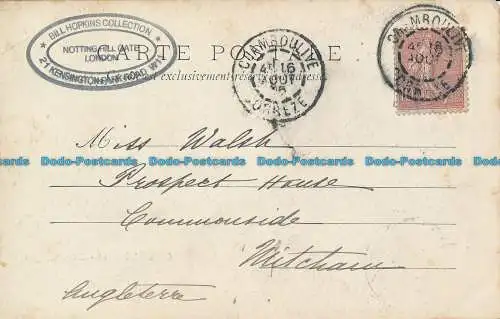 BILL HOPKINS COLLECTION
NOTTING HILL GATE
LONDON
21 KENSINGTON PARK ROAD, W11
CARTE POSTALE
exclusivement réservé
CHAMBOULIVE
16
CORRÈZE
CHAMBOULIVE
16
Miss Walsh
Prospect House
Commonside
Mitcham
Angleterre
Dodo-Postcards Dodo-Postcards Dodo-Postcards Dodo-Postcards Dodo-Postcards Dodo-Postcards